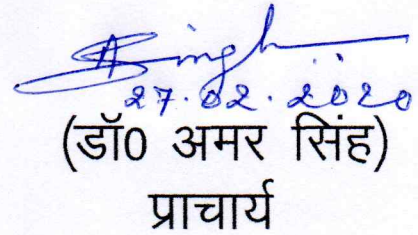 ASingh
27.02.2020
(डॉ0 अमर सिंह)
प्राचार्य